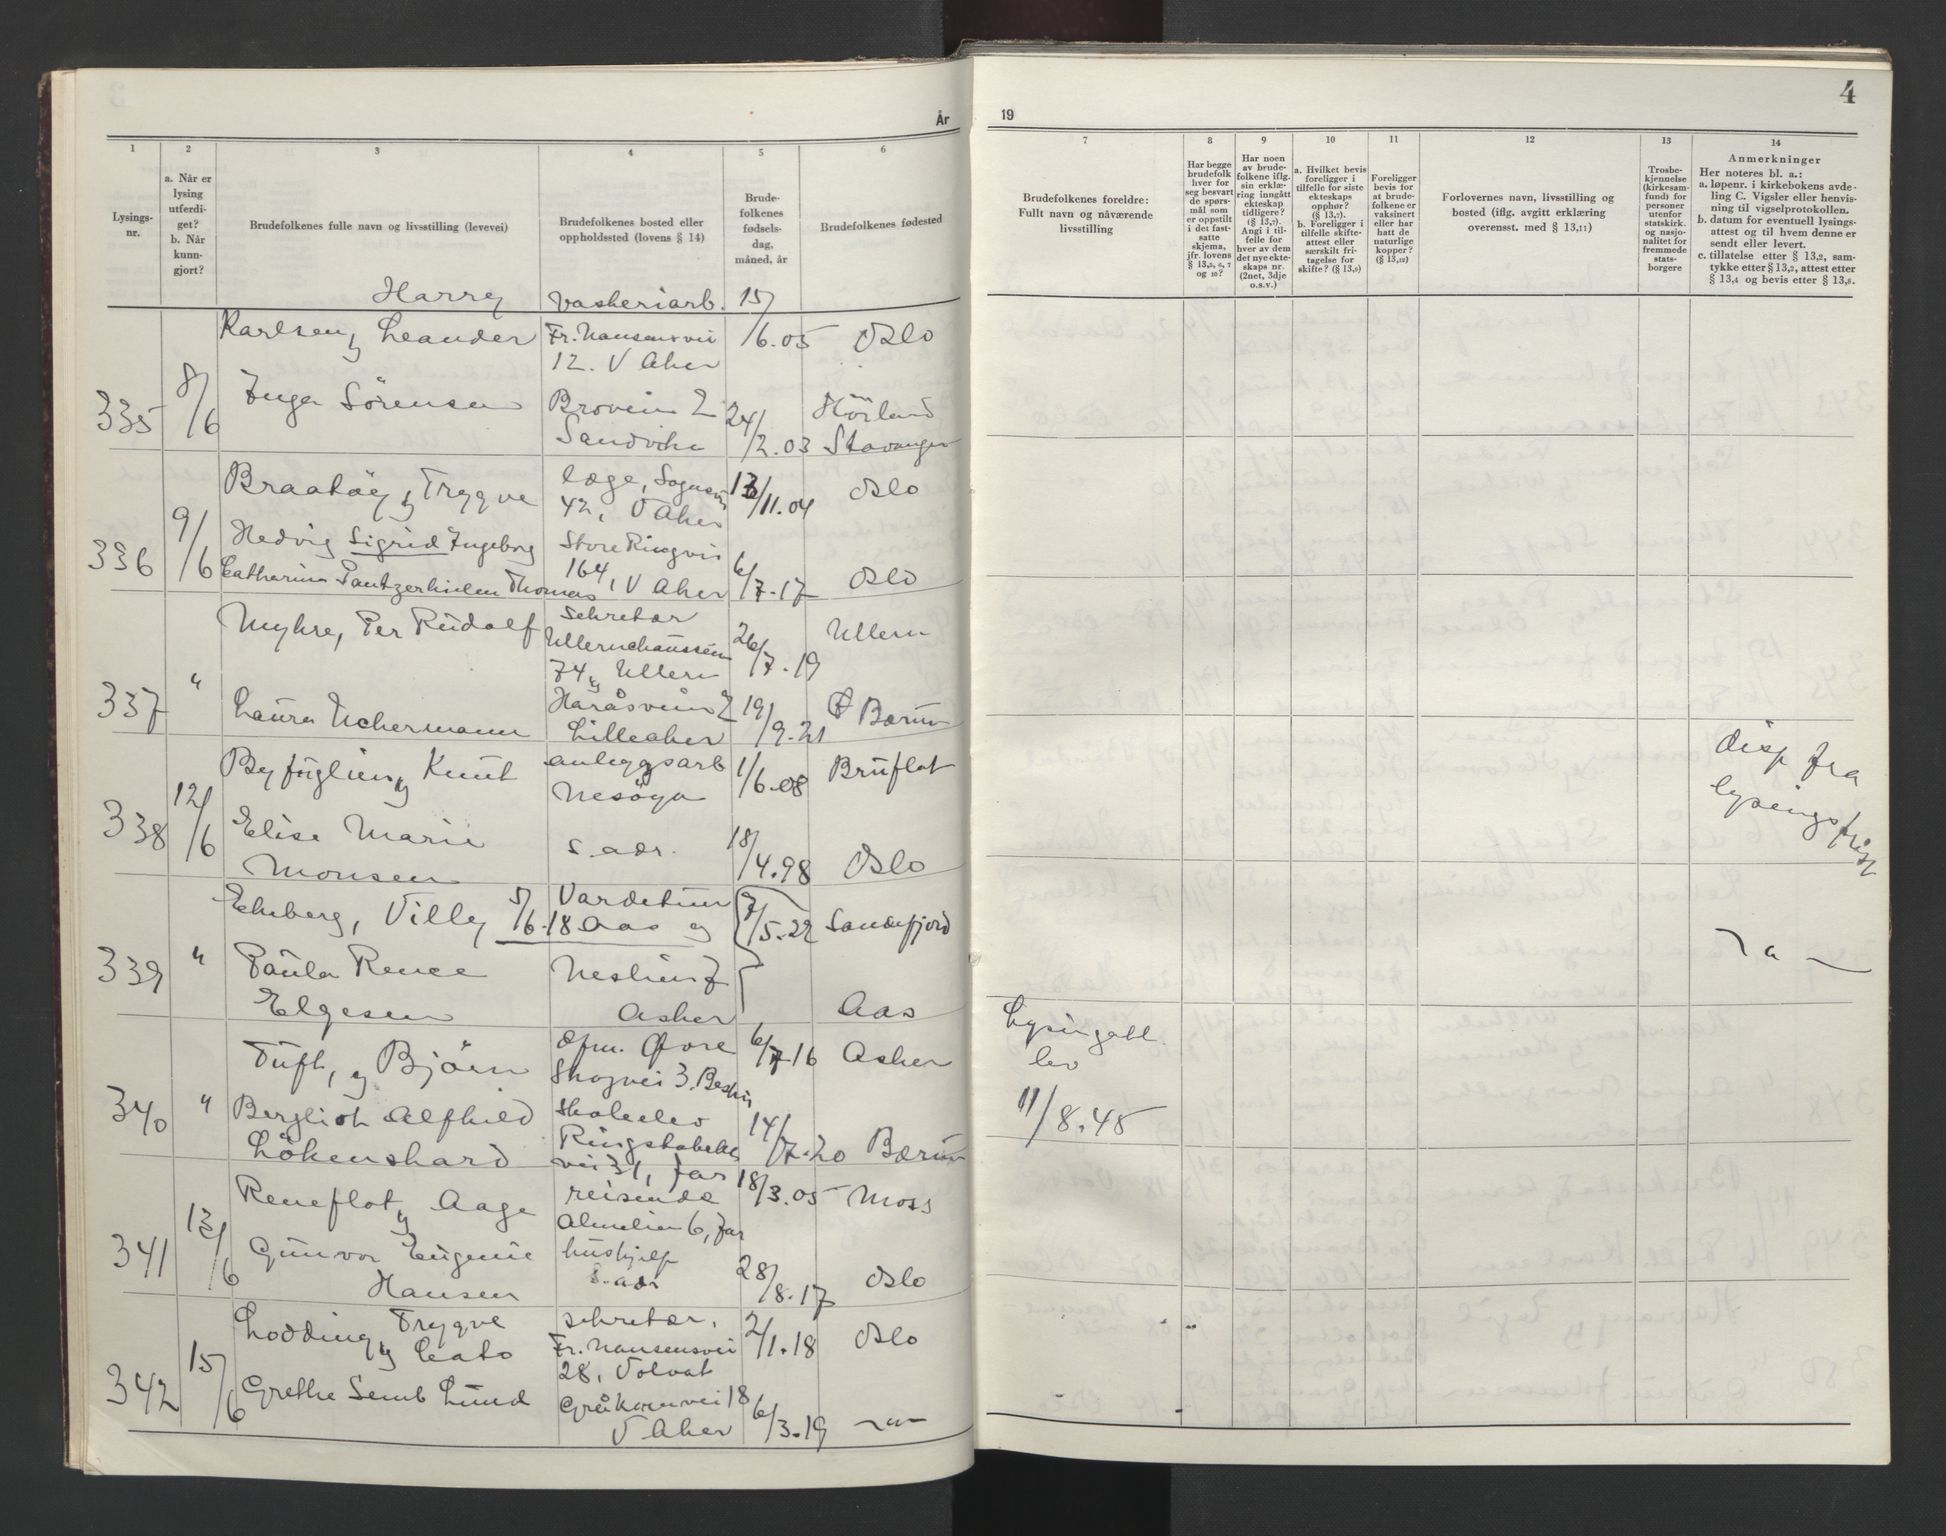 År
1
2
3
4
5
6
Lysings-
nr.
a. Når er
lysing
utferdi-
get?
b. Når
kunn-
gjort?
Brudefolkenes fulle navn og livsstilling (levevei)
Brudefolkenes bosted eller
oppholdssted (lovens § 14)
Brude-
folkenes
fødsels-
dag,
måned, år
Brudefolkenes fødested
Harry vaskeriarb. 15/
Karlsen, Leander Fr. Nansensvei /6.05 Oslo
og
12. V Aker
8/
335 /6 Inga Sörensen Brovein 2 24/ Hörland
Sandvika /2.03 Stavanger
Braatöy, Trygve læge, Sognsv. 13/11.04 Oslo
og
42, V Aker
9/
Hedvig Sigrid Ingeborg Store Ringvei
336 /6 Catharina Pantzerhielm Thomas 164, V Aker 6/7.17 Oslo
Myhre, Per Rudolf sekretær 26/7.19 Ullern
Ullernchausseen
74 og Ullern
337 " Laura Uchermann Haråsvein 2 19/9.21 Bærum
Lilleaker
Byfuglien, Knut anleggsarb 1/6.08 Bruflat
og
Nesöya
12/
338 /6 Elise Marie s. adr. 18/4.98 Oslo
Monsen
Ekeberg, Villy 5/6.18 Vardetun 7/5.22 Sandefjord
Aas og
339 " Paula Renee Neslien 7
Elgesen Asker Aas
Tuft, Björn Øvre 6/7 16 Asker
og
Skogvei 3. Bestun
340 " Bergliot Alfhild skoleelev 14/7.20 Bærum
Lökenskard Ringstabekk
vei 31, Jar
Reneflot, Aage reisende 18/3.05 Moss
og
Almelien 6, Jar
13/
341 /6 Gunvor Eugenie hushjelp 28/8.17 Oslo
Hansen s. adr
Lodding, Trygve sekretær, 2/1.18 Oslo
og Cato Fr. Nansensvei
28, Volvat
15/
342 /6 Grethe Semb Lund Gråkamvei 18 6/3.19 -"-
V Aker
4
19
7
8
9
10
11
12
13
14
Brudefolkenes foreldre:
Fullt navn og nåværende
livsstilling
Har begge
brudefolk
hver for
seg besvart
de spørs-
mål som
er oppstilt
i det fast-
satte
skjema,
jfr. lovens
§ 13,5, 6, 7
og 10?
Har noen
av brude-
folkene iflg.
sin erklæ-
ring inngått
ekteskap
tidligere?
(§ 13,7).
Angi i til-
felle for
hver av dem
det nye ekte-
skaps nr.
(2net, 3dje
o.s.v.)
a. Hvilket bevis
foreligger i
tilfelle for siste
ekteskaps
opphør?
(§ 13,7).
b. Foreligger i
tilfelle skifte-
attest eller
særskilt fri-
tagelse for
skifte? (§ 13,9)
Foreligger
bevis for
at brude-
folkene er
vaksinert
eller har
hatt de
naturlige
kopper?
(§ 13,12)
Forlovernes navn, livsstilling og
bosted (iflg. avgitt erklæring
overensst. med § 13,11)
Trosbe-
kjennelse
(kirkesam-
fund) for
personer
utenfor
statskirk.
og nasjo-
nalitet for
fremmede
stats-
borgere
Anmerkninger
Her noteres bl. a.:
a. løpenr. i kirkebokens avde-
ling C. Vigsler eller henvis-
ning til vigselprotokollen.
b. datum for eventuell lysings-
attest og til hvem denne er
sendt eller levert.
c. tillatelse etter § 13,2, sam-
tykke etter § 13,2, attest etter
§ 13,4 og bevis etter § 13,8.
disp fra
lysingsfrist
-"-
Lysingatt.
lev
11/8.45